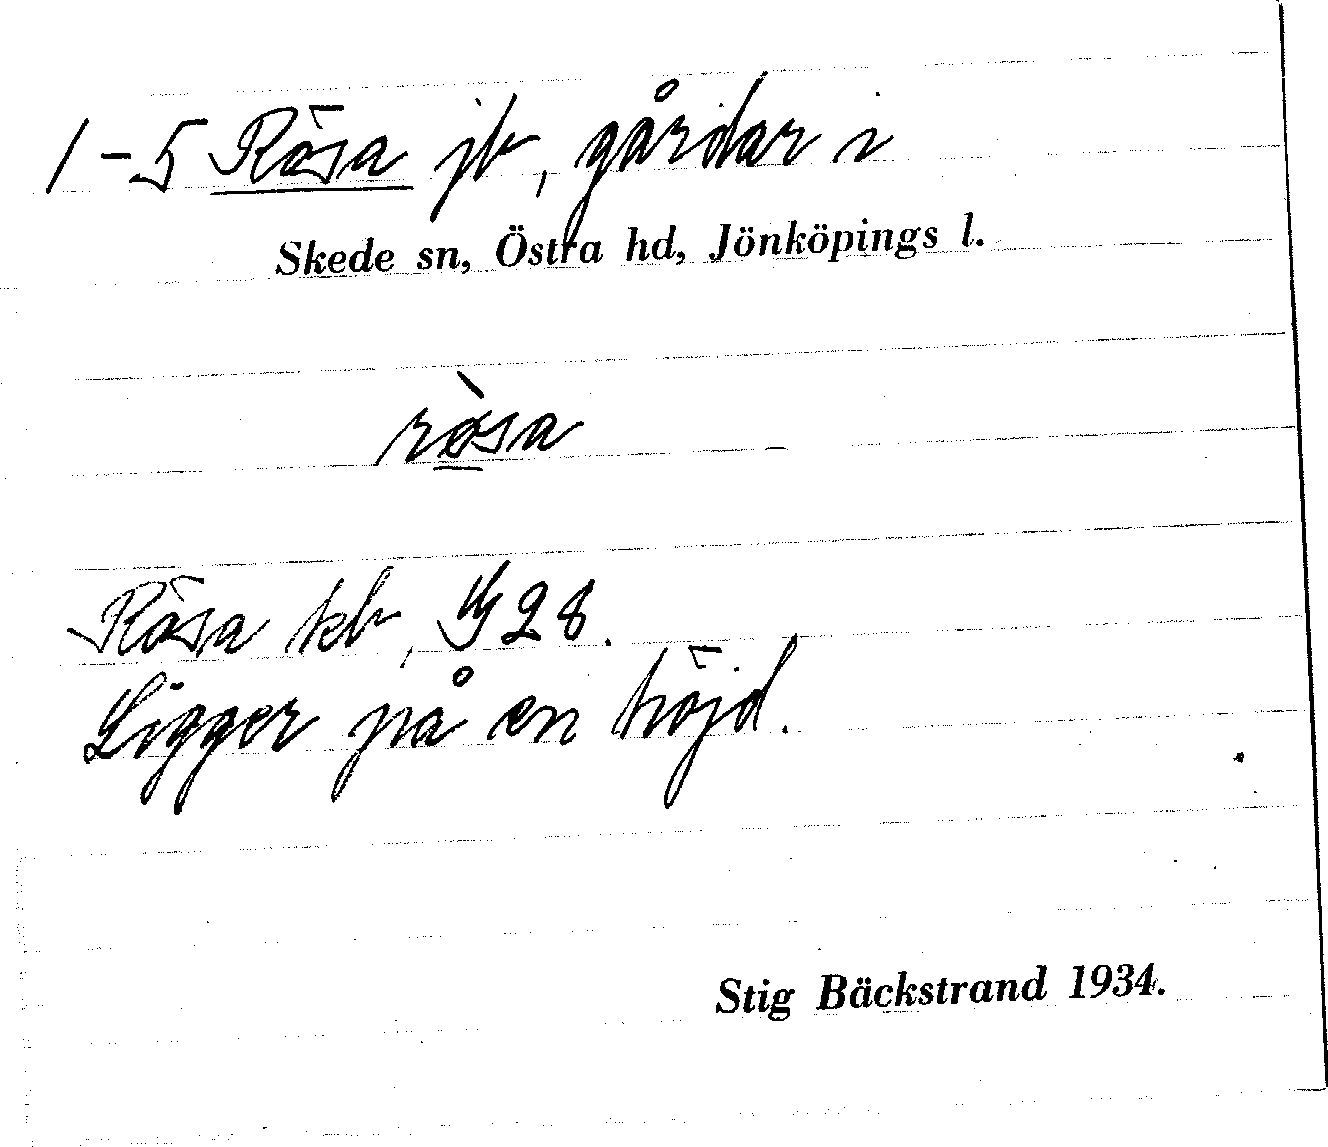 1-5 Rösa jb, gårdar i
Skede sn, Östra hd, Jönköpings l.
rò̱sa
Rösa kb, 28.
Ligger på en höjd.
Stig Bäckstrand 1934.